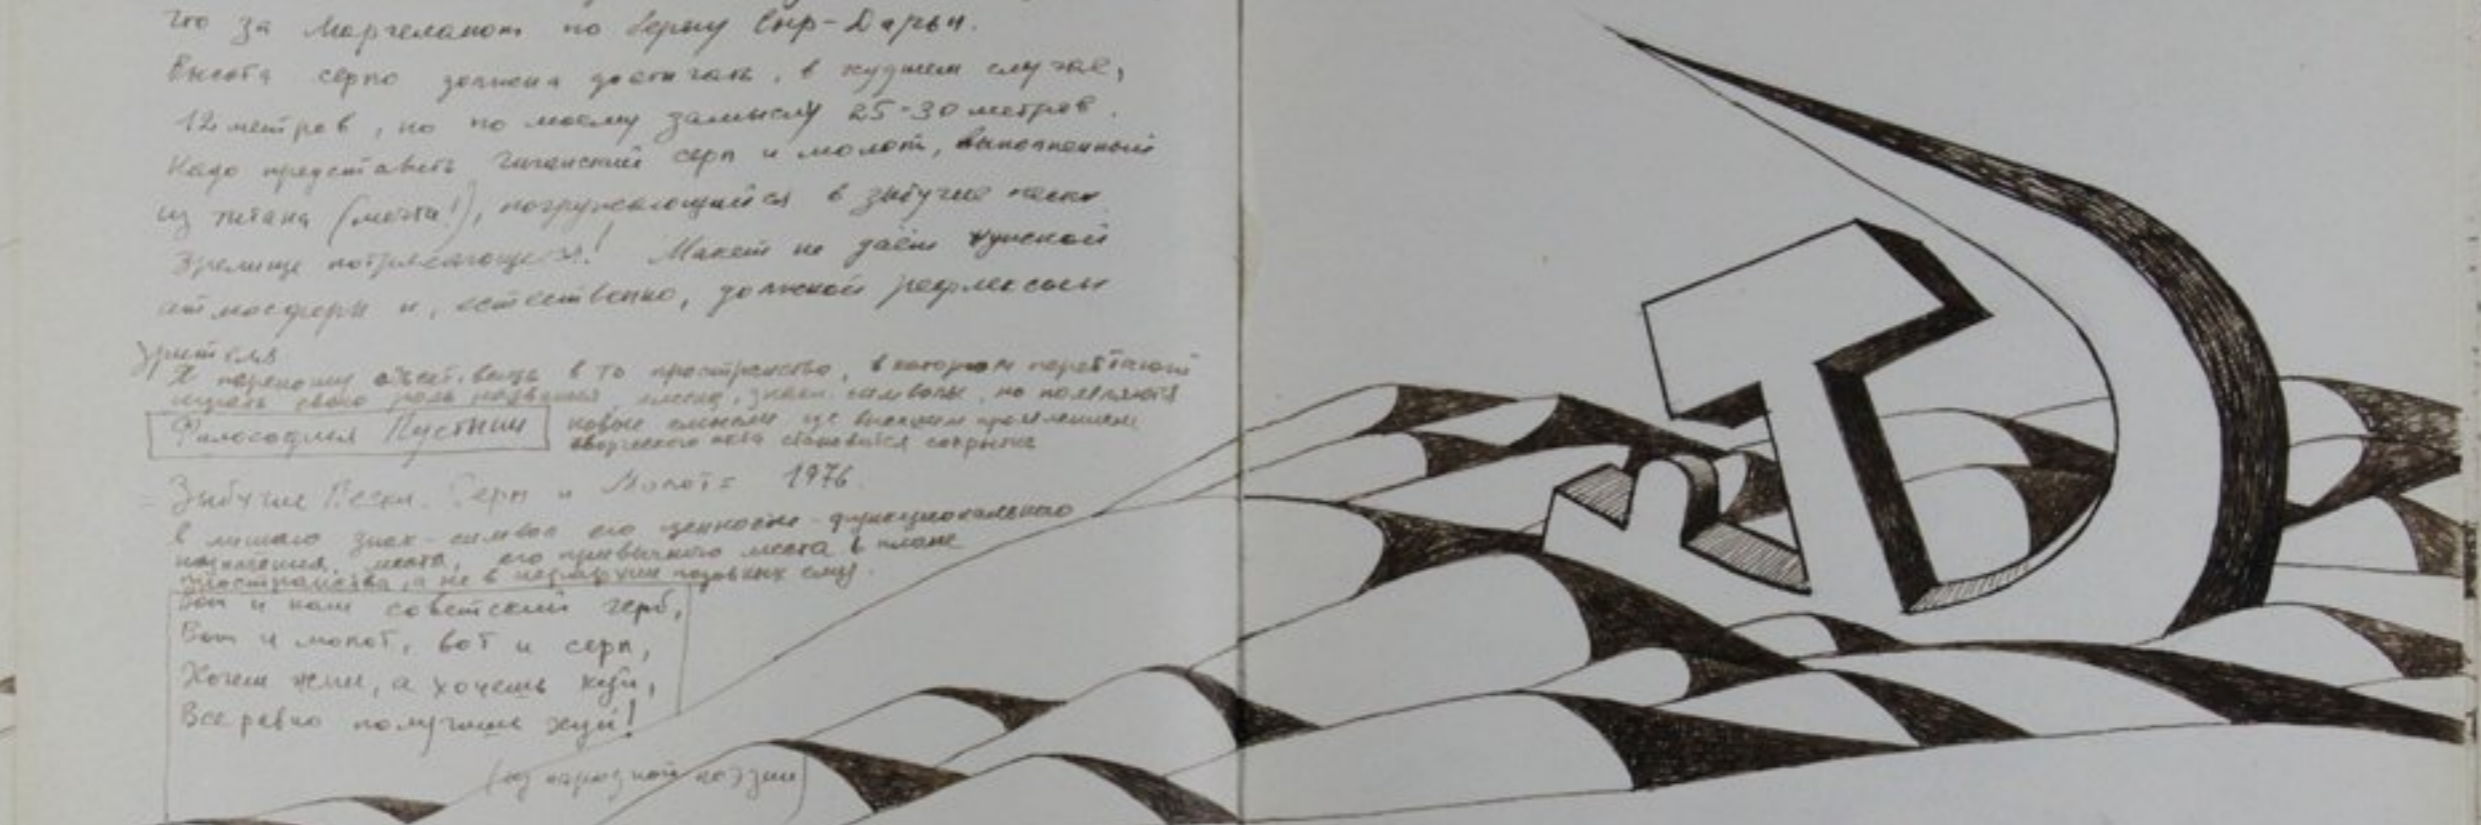 что за Маргеланом по берегу Сыр-Дарьи.
Высота серпа должна достигать, в худшем случае,
12 метров, но по моему замыслу 25-30 метров.
Надо представить гигантский серп и молот, выполненный
из титана (мечта!), погружающийся в зыбучие пески
Зрелище потрясающее! Макет не даёт нужной
атмосферы и, естественно, должной рефлексии
зрителя
Я переношу объект. вещь в то пространство, в котором перестают
играть свою роль названия, имена, знаки. символы, но появляются
Философия Пустыни
новые смыслы где высшим проявлением
творческого акта становится сокрытие
= Зыбучие Пески. Серп и Молот = 1976.
Я лишаю знак-символ его ценностно-функционального
назначения, места, его привычного места в плане
пространства, а не в иерархии подобных ему.
Вот и наш советский герб,
Вот и молот, вот и серп,
Хочешь жни, а хочешь куй,
Все равно получишь хуй!
(из народной поэзии)